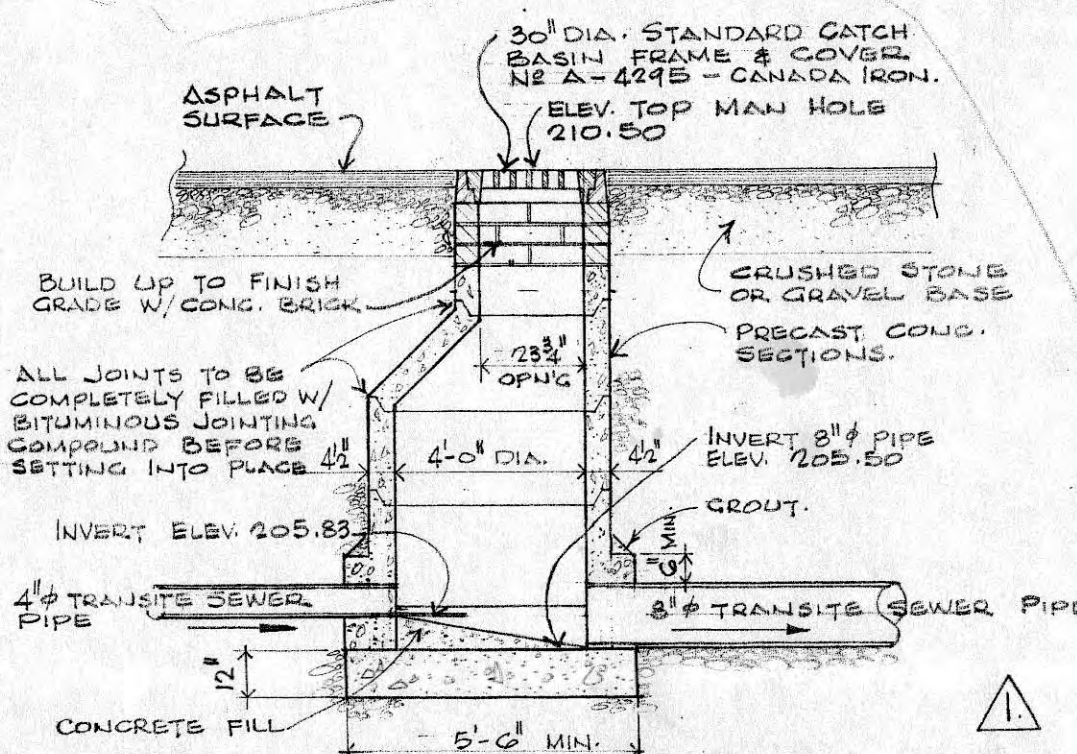 30" DIA. STANDARD CATCH
BASIN FRAME & COVER
Nº A-4295 - CANADA IRON.
ASPHALT
SURFACE
ELEV. TOP MAN HOLE
210.50
BUILD UP TO FINISH
GRADE W/CONC. BRICK
CRUSHED STONE
OR GRAVEL BASE
PRECAST CONC.
SECTIONS.
23¾"
OPN'G
ALL JOINTS TO BE
COMPLETELY FILLED W/
BITUMINOUS JOINTING
COMPOUND BEFORE
SETTING INTO PLACE
4½"
4'-0" DIA.
4½"
INVERT 8"ϕ PIPE
ELEV. 205.50
GROUT.
6" MIN.
INVERT ELEV. 205.83
4"ϕ TRANSITE SEWER
PIPE
8"ϕ TRANSITE SEWER PIPE
12"
CONCRETE FILL
5'-6" MIN.
1.